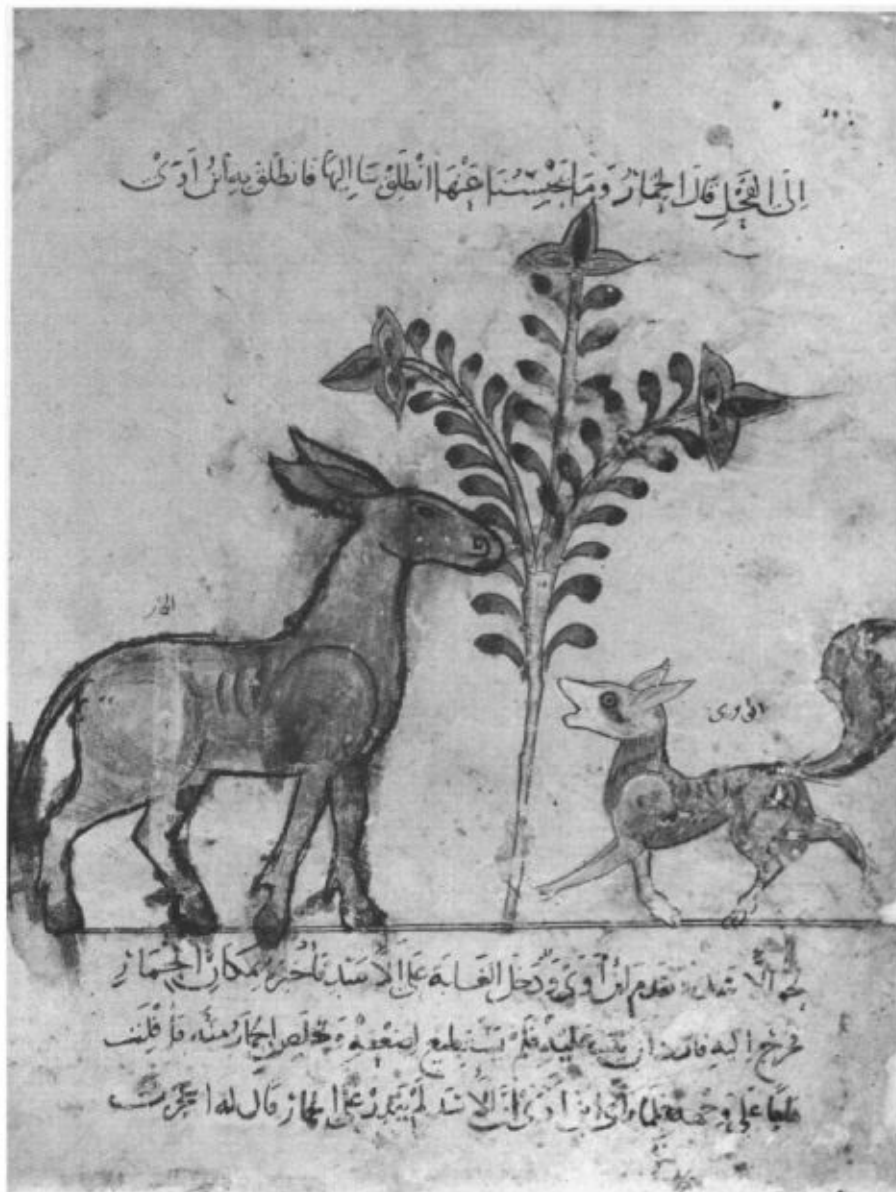 إلى الفحل قال الحمار وما يحبسنا عنها انطلق بنا إليها فانطلق به ابن آوى
الحمار
ابن اوى
نحو الأسد وتقدم ابن آوى ودخل الغابة على الأسد فأخبره بمكان الحمار
فخرج إليه فأراد أن يثب عليه فلم يستطع لضعفه وتخلص الحمار منه فأفلت
هلعا على وجهه فلما رأى ابن آوى أن الأسد لم يقدر على الحمار قال له أعجزت